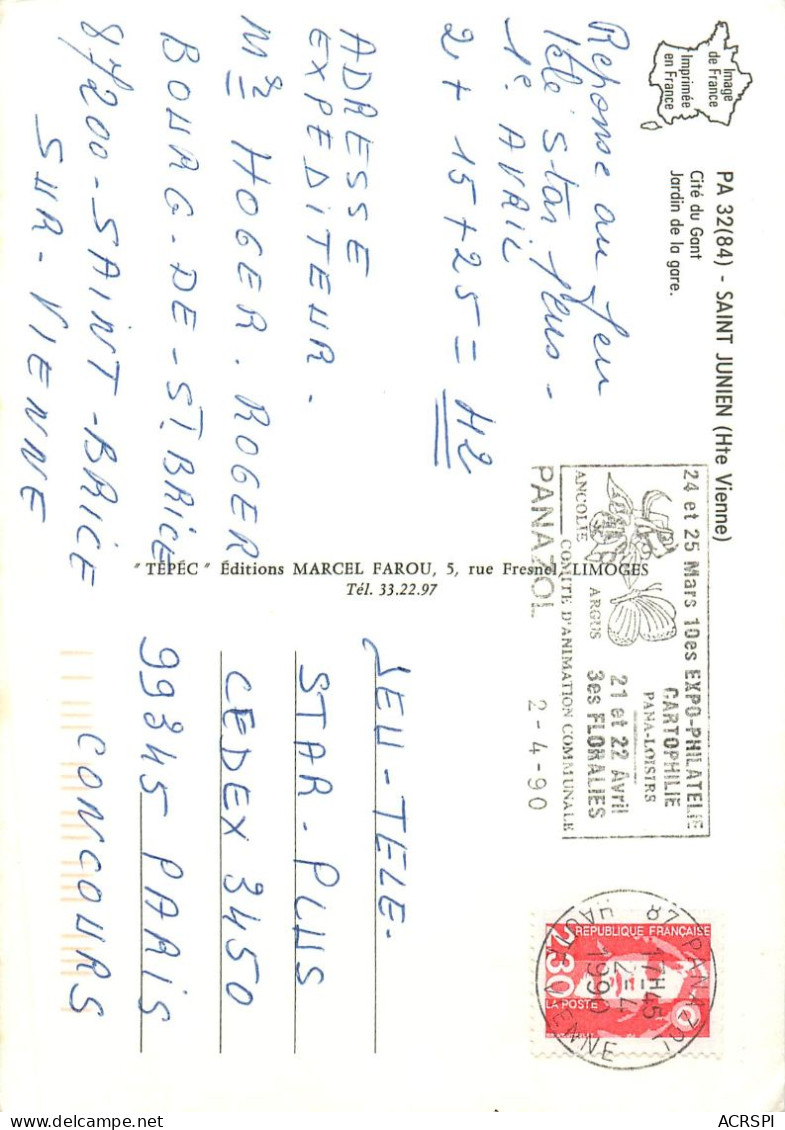 Image
de France
Imprimée
en France
PA 32(84) - SAINT JUNIEN (Hte Vienne)
Cité du Gant
Jardin de la gare.
Reponse au Jeu
télé Star plus -
1e. AVRIL
2 + 15 + 25 = 42
ADRESSE
EXPEDITEUR.
Mr HOGER. ROGER
BOURG-DE-St. BRICE
87200-SAINT-BRICE
SUR-VIENNE
" TÉPÉC " Éditions MARCEL FAROU, 5, rue Fresnel, LIMOGES
Tél. 33.22.97
24 et 25 Mars 10es EXPO-PHILATELIE
CARTOPHILIE
PANA-LOISIRS
21 et 22 Avril
3es FLORALIES
ANCOLIE ARGUS
COMITE D'ANIMATION COMMUNALE
PANAZOL 2-4-90
87 PANAZOL
17H45
2-4
1990
HAUTE VIENNE
REPUBLIQUE FRANÇAISE
2,30
LA POSTE
JEU-TELE-
STAR-PLUS
CEDEX 3450
99345 PARIS
CONCOURS
ACRSPI